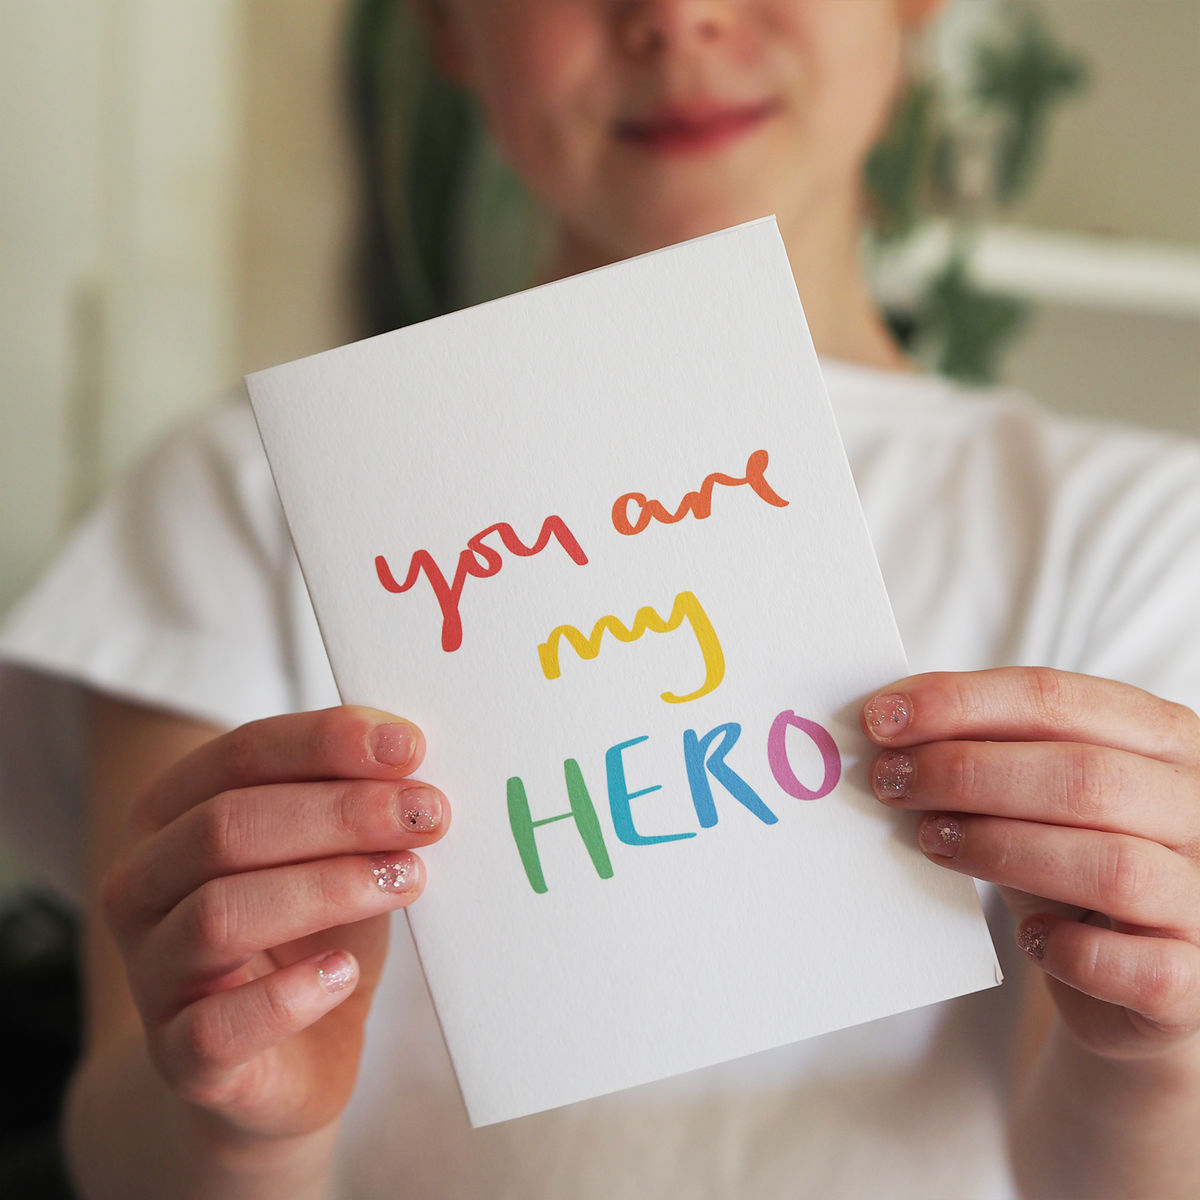 you are
my
HERO